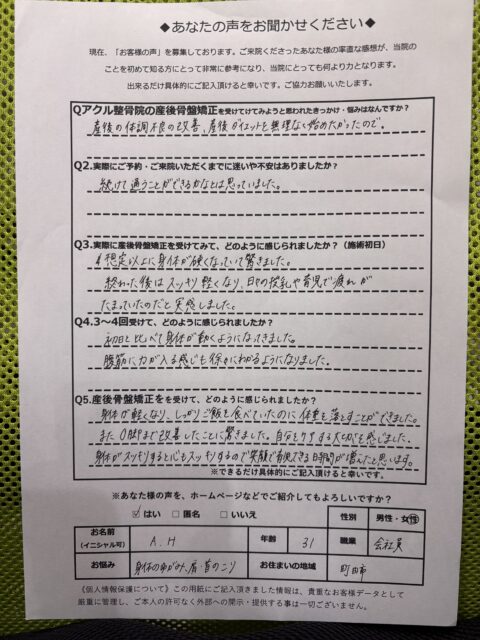 ◆あなたの声をお聞かせください◆
現在、「お客様の声」を募集しております。ご来院くださったあなた様の率直な感想が、当院の
ことを初めて知る方にとって非常に参考になり、当院にとっても何より力となります。
出来るだけ具体的にご記入頂けると幸いです。ご協力お願いいたします。
Qアクル整骨院の産後骨盤矯正を受けてけてみようと思われたきっかけ・悩みはなんですか？
産後の体調不良の改善、産後ダイエットを無理なく始めたかったので。
Q2.実際にご予約・ご来院いただくまでに迷いや不安はありましたか？
続けて通うことができるかなとは思っていました。
Q3.実際に産後骨盤矯正を受けてみて、どのように感じられましたか？（施術初日）
想定以上に身体が硬くなっていて驚きました。
終わった後はスッキリ軽くなり、日々の授乳や育児で疲れが
たまっていたのだと実感しました。
Q4.3〜4回受けて、どのように感じられましたか？
初日と比べて身体が動くようになってきました。
腹筋に力が入る感じも徐々にわかるようになりました。
Q5.産後骨盤矯正をを受けて、どのように感じられましたか？
身体が軽くなり、しっかりご飯を食べていたのに体重を落とすことができました。
またO脚まで改善したことに驚きました。自分をケアする大切さを感じました。
身体がスッキリすると心もスッキリするので笑顔で育児できる時間が増えたと思います。
※できるだけ具体的にご記入頂けると幸いです。
※あなた様の声を、ホームページなどでご紹介してもよろしいですか？
☑はい □匿名 □いいえ
性別 男性・女性
お名前（イニシャル可） A.H 年齢 31 職業 会社員
お悩み 身体のゆがみ、肩・首のこり お住まいの地域 町田市
《個人情報保護について》この用紙にご記入頂きました情報は、貴重なお客様データとして
厳重に管理し、ご本人の許可なく外部への開示・提供する事は一切ございません。